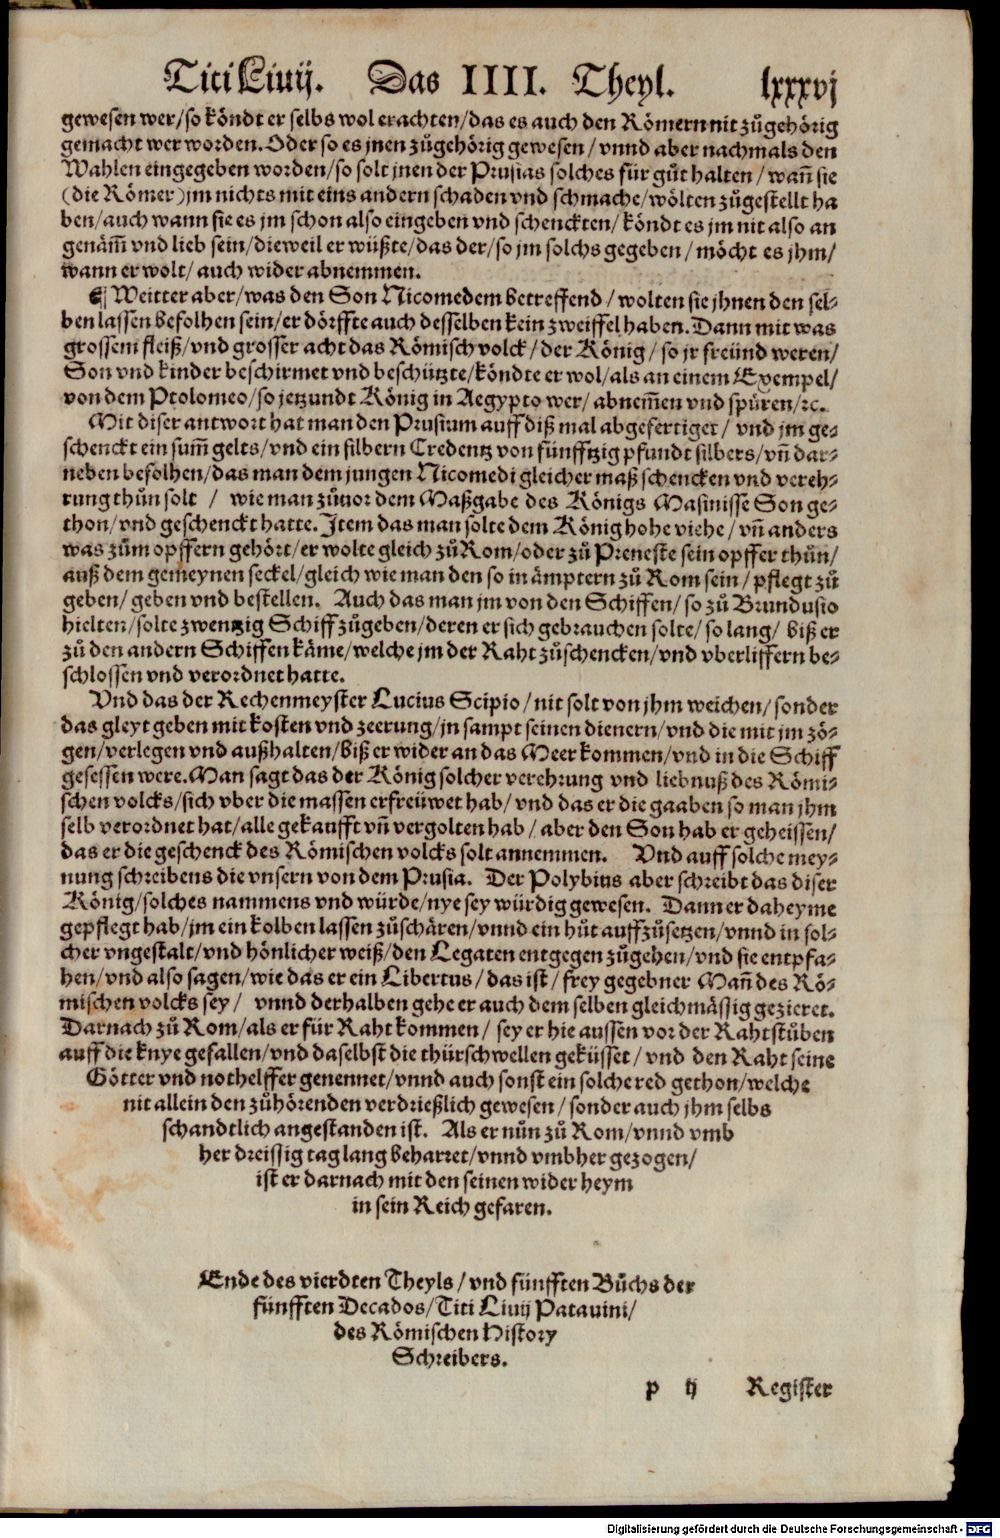 Titi Liuij. Das IIII. Theyl. lxxxvj
gewesen wer/so köndt er selbs wol erachten/das es auch den Römern nit zůgehörig
gemacht wer worden. Oder so es jnen zůgehörig gewesen/ vnnd aber nachmals den
Wahlen eingegeben worden/so solt jnen der Prusias solches für gůt halten/ wañ sie
(die Römer)jm nichts mit eins andern schaden vnd schmache/wölten zůgestellt ha
ben/auch wann sie es jm schon also eingeben vnd schenckten/ köndt es jm nit also an
genäm̃ vnd lieb sein/dieweil er wüßte/das der/so jm solchs gegeben/ möcht es jhm/
wann er wolt/ auch wider abnemmen.
¶ Weitter aber/was den Son Nicomedem betreffend/ wolten sie jhnen den sel⸗
ben lassen befolhen sein/er dörffte auch desselben kein zweiffel haben. Dann mit was
grossem fleiß/vnd grosser acht das Römisch volck/ der König/ so jr freünd weren/
Son vnd kinder beschirmet vnd beschützte/köndte er wol/als an einem Exempel/
von dem Ptolomeo/so jetzundt König in Aegypto wer/ abnem̃en vnd spüren/ꝛc.
Mit diser antwort hat man den Prusium auff diß mal abgefertiget/ vnd jm ge⸗
schenckt ein sum̃ gelts/vnd ein silbern Credentz von fünfftzig pfundt silbers/vñ dar⸗
neben befolhen/das man dem jungen Nicomedi gleicher maß schencken vnd vereh⸗
rung thůn solt / wie man zůuor dem Maßgabe des Königs Masinisse Son ge⸗
thon/vnd geschenckt hatte. Item das man solte dem König hohe viehe/ vñ anders
was zům opffern gehört/er wolte gleich zů Rom/oder zů Preneste sein opffer thůn/
auß dem gemeynen seckel/gleich wie man den so in ämptern zů Rom sein/ pflegt zů
geben/ geben vnd bestellen. Auch das man jm von den Schiffen/ so zů Brundusio
hielten/solte zwentzig Schiff zůgeben/deren er sich gebrauchen solte/ so lang/ biß er
zů den andern Schiffen käme/welche jm der Raht zůschencken/vnd vberliffern be⸗
schlossen vnd verordnet hatte.
Vnd das der Rechenmeyster Lucius Scipio/ nit solt von jhm weichen/ sonder
das gleyt geben mit kosten vnd zeerung/jn sampt seinen dienern/vnd die mit jm zö⸗
gen/verlegen vnd außhalten/biß er wider an das Meer kommen/vnd in die Schiff
gesessen were. Man sagt das der König solcher verehrung vnd liebnuß des Römi⸗
schen volcks/sich vber die massen erfreüwet hab/ vnd das er die gaaben so man jhm
selb verordnet hat/alle gekaufft vñ vergolten hab/ aber den Son hab er geheissen/
das er die geschenck des Römischen volcks solt annemmen. Vnd auff solche mey⸗
nung schreibens die vnsern von dem Prusia. Der Polybius aber schreibt das diser
König/solches nammens vnd würde/nye sey würdig gewesen. Dann er daheyme
gepflegt hab/jm ein kolben lassen zůschären/vnnd ein hůt auffzůsetzen/vnnd in sol⸗
cher vngestalt/vnd hönlicher weiß/den Legaten entgegen zůgehen/vnd sie entpfa⸗
hen/vnd also sagen/wie das er ein Libertus/das ist/frey gegebner Mañ des Rö⸗
mischen volcks sey/ vnnd derhalben gehe er auch dem selben gleichmässig gezieret.
Darnach zů Rom/als er für Raht kommen/ sey er hie aussen vor der Rahtstůben
auff die knye gefallen/vnd daselbst die thürschwellen geküsset/ vnd den Raht seine
Götter vnd nothelffer genennet/vnnd auch sonst ein solche red gethon/welche
nit allein den zůhörenden verdrießlich gewesen/ sonder auch jhm selbs
schandtlich angestanden ist. Als er nůn zů Rom/vnnd vmb
her dreissig tag lang beharret/vnnd vmbher gezogen/
ist er darnach mit den seinen wider heym
in sein Reich gefaren.
Ende des vierdten Theyls/ vnd fünfften Bůchs der
fünfften Decados/Titi Liuij Patauini/
des Römischen History
Schreibers.
p ij Register
Digitalisierung gefördert durch die Deutsche Forschungsgemeinschaft - DFG